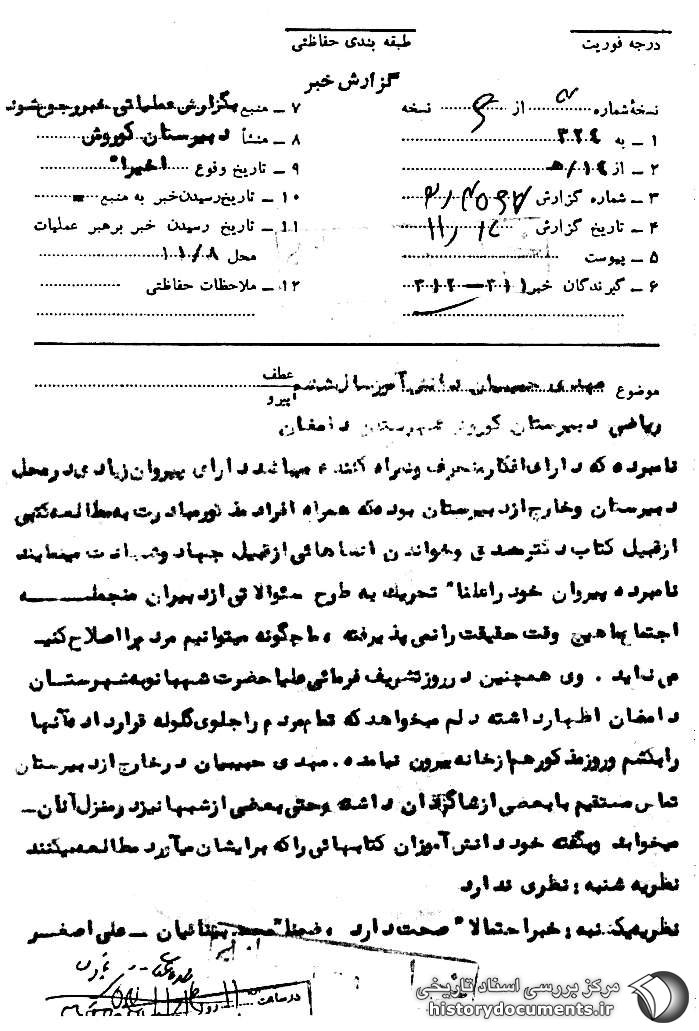 طبقه بندی حفاظتی
درجه فوریت
گزارش خبر
نسخهٔ شماره از نسخه
۱ ـ به ۳۲۴
۲ ـ از ۱۴/ه
۳ ـ شماره گزارش
۴ ـ تاریخ گزارش
۵ ـ پیوست
۶ ـ گیرندگان خبر ۳۱۱ — ۳۱۲
۷ ـ منبع بگزارش عملیاتی خبر رجوع شود
۸ ـ منشأ دبیرستان کوروش
۹ ـ تاریخ وقوع اخیرا"
۱۰ ـ تاریخ رسیدن خبر به منبع
۱۱ ـ تاریخ رسیدن خبر برهبر عملیات
محل ۱۱/۸
۱۲ ـ ملاحظات حفاظتی
موضوع مهدی حبیبیان دانش آموز سال ششم
عطف
پیرو
ریاضی دبیرستان کوروش شهرستان دامغان
نامبرده که دارای افکار منحرف و گمراه کننده میباشد دارای پیروان زیادی در محل
دبیرستان و خارج از دبیرستان بوده که همراه افراد مذکور مبادرت به مطالعه کتبی
از قبیل کتاب دکتر مصدق و خواندن انشاهائی از قبیل جهاد و شهادت مینمایند
نامبرده پیروان خود را علنا" تحریک به طرح سئوالاتی از دبیران منجمله
اجتماع ما هیچ وقت حقیقت را نمی پذیرفته ، ما چگونه میتوانیم مردم را اصلاح کنیم
می نماید . وی همچنین در روز تشریف فرمائی علیا حضرت شهبانو به شهرستان
دامغان اظهار داشته دلم میخواهد که تمام مردم را جلوی گلوله قرار داده آنها
را بکشم و روز مذکور هم از خانه بیرون نیامده . مهدی حبیبیان در خارج از دبیرستان
تماس مستقیم با بعضی از شاگردان داشته و حتی بعضی از شبها نیز در منزل آنان
میخوابد و بگفته خود دانش آموزان کتابهائی را که برایشان میآورد مطالعه میکنند
نظریه شنبه : نظری ندارد
نظریه یکشنبه : خبر احتمالا" صحت دارد ، ضمنا" محمد یغمائیان ـ علی اصغر
در ساعت روز
مرکز بررسی اسناد تاریخی
historydocuments.ir